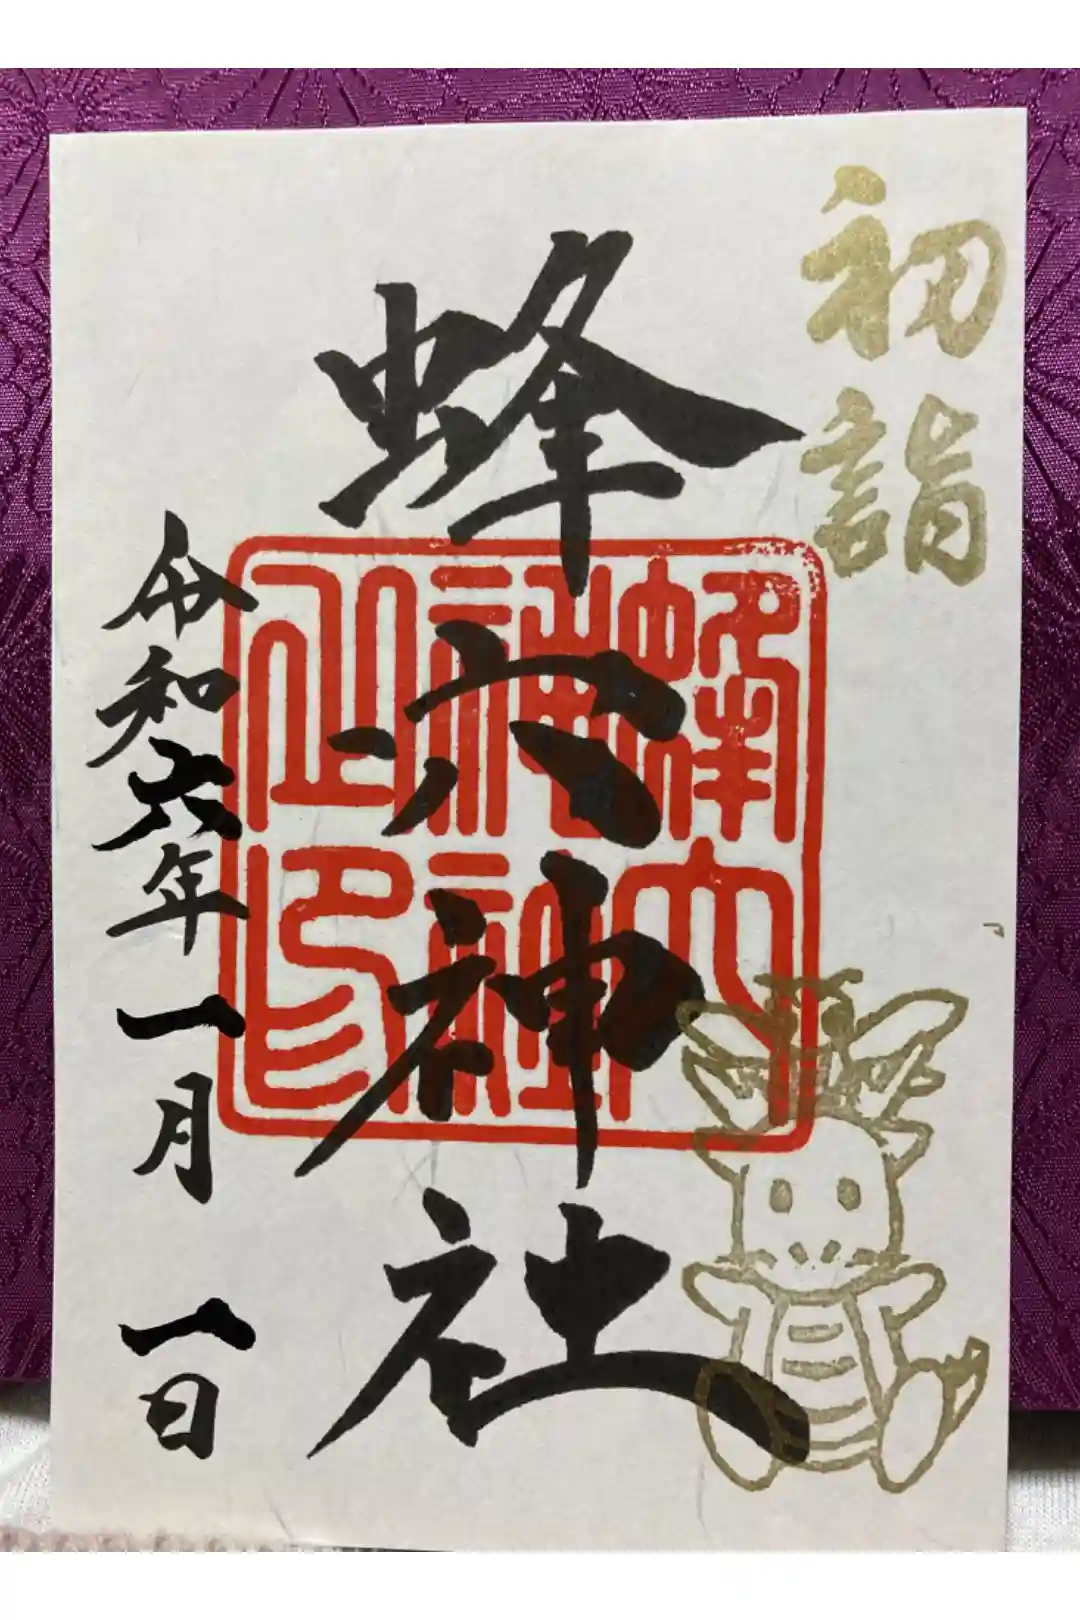 初詣
蜂穴神社
蜂穴
神社
之印
令和六年一月一日